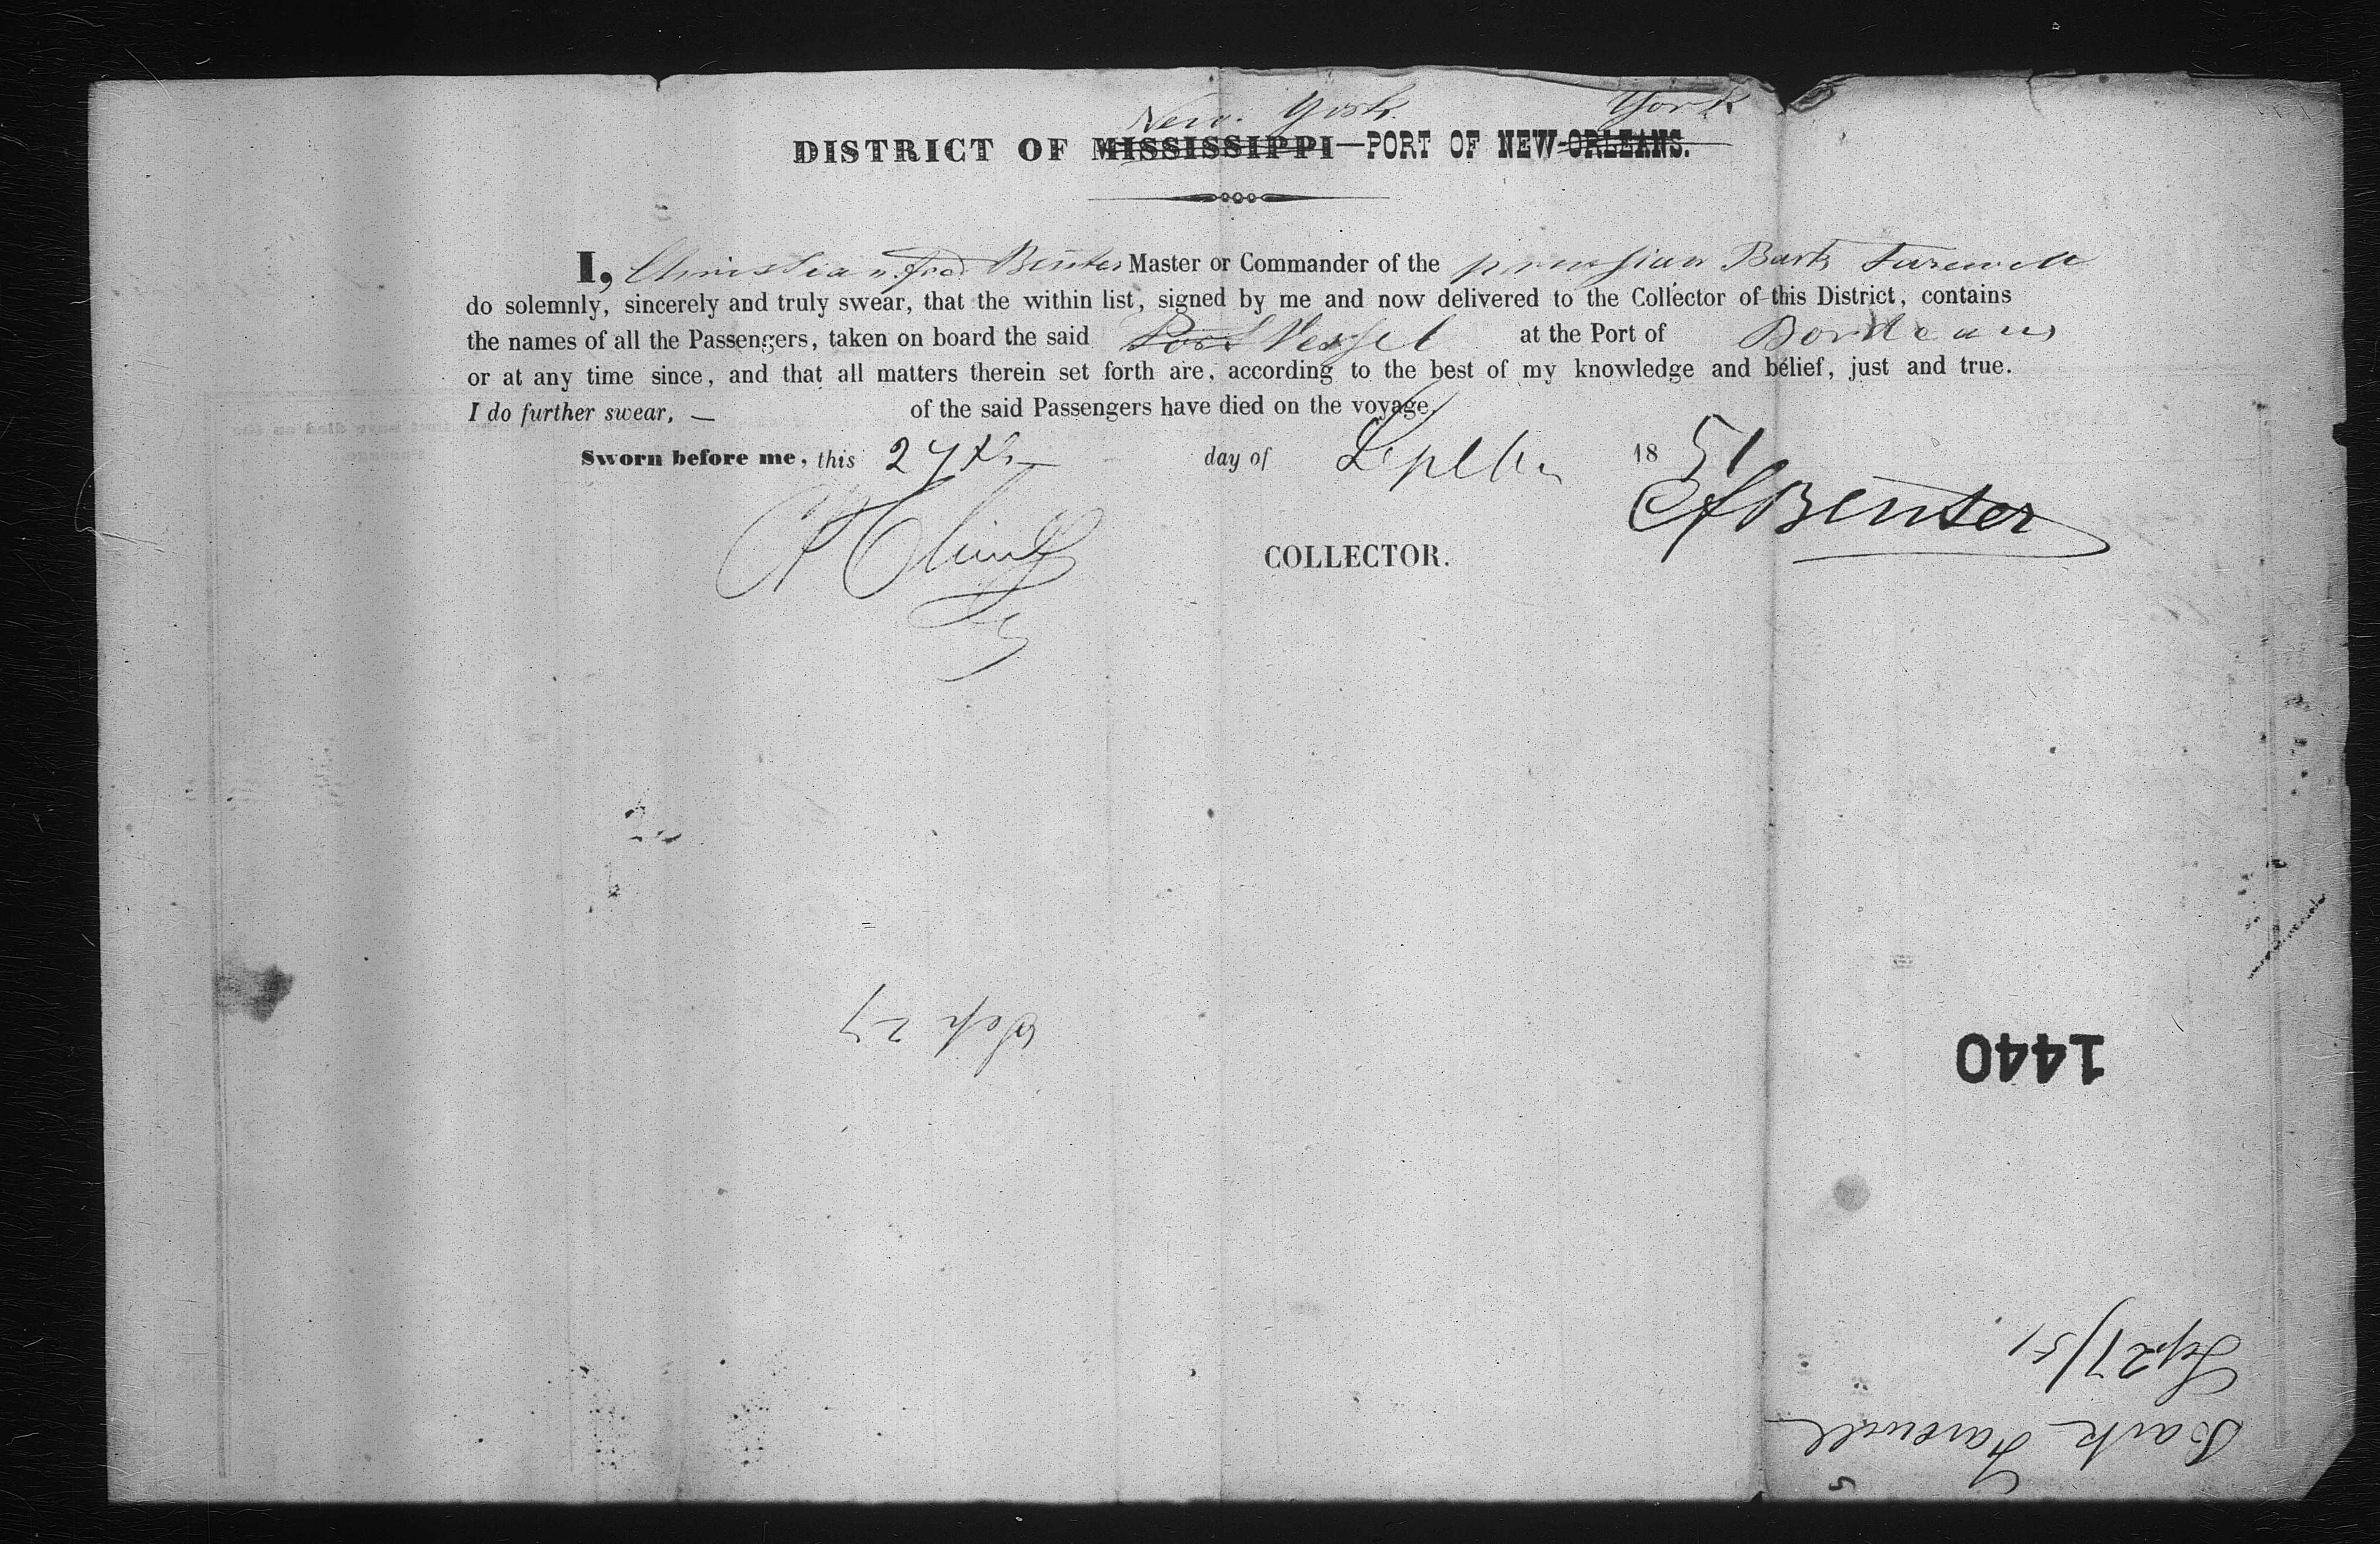 New York. York
DISTRICT OF MISSISSIPPI—PORT OF NEW-ORLEANS.
I, Christian Fred Benter Master or Commander of the prussian Bark Farewell
do solemnly, sincerely and truly swear, that the within list, signed by me and now delivered to the Collector of this District, contains
the names of all the Passengers, taken on board the said Port Vessel at the Port of Bordeaux
or at any time since, and that all matters therein set forth are, according to the best of my knowledge and belief, just and true.
I do further swear, — of the said Passengers have died on the voyage.
Sworn before me, this 27th day of Septbr 1851
CFBenter
COLLECTOR.
Sep 27
1440
Bark Farewell
Sep 27/51